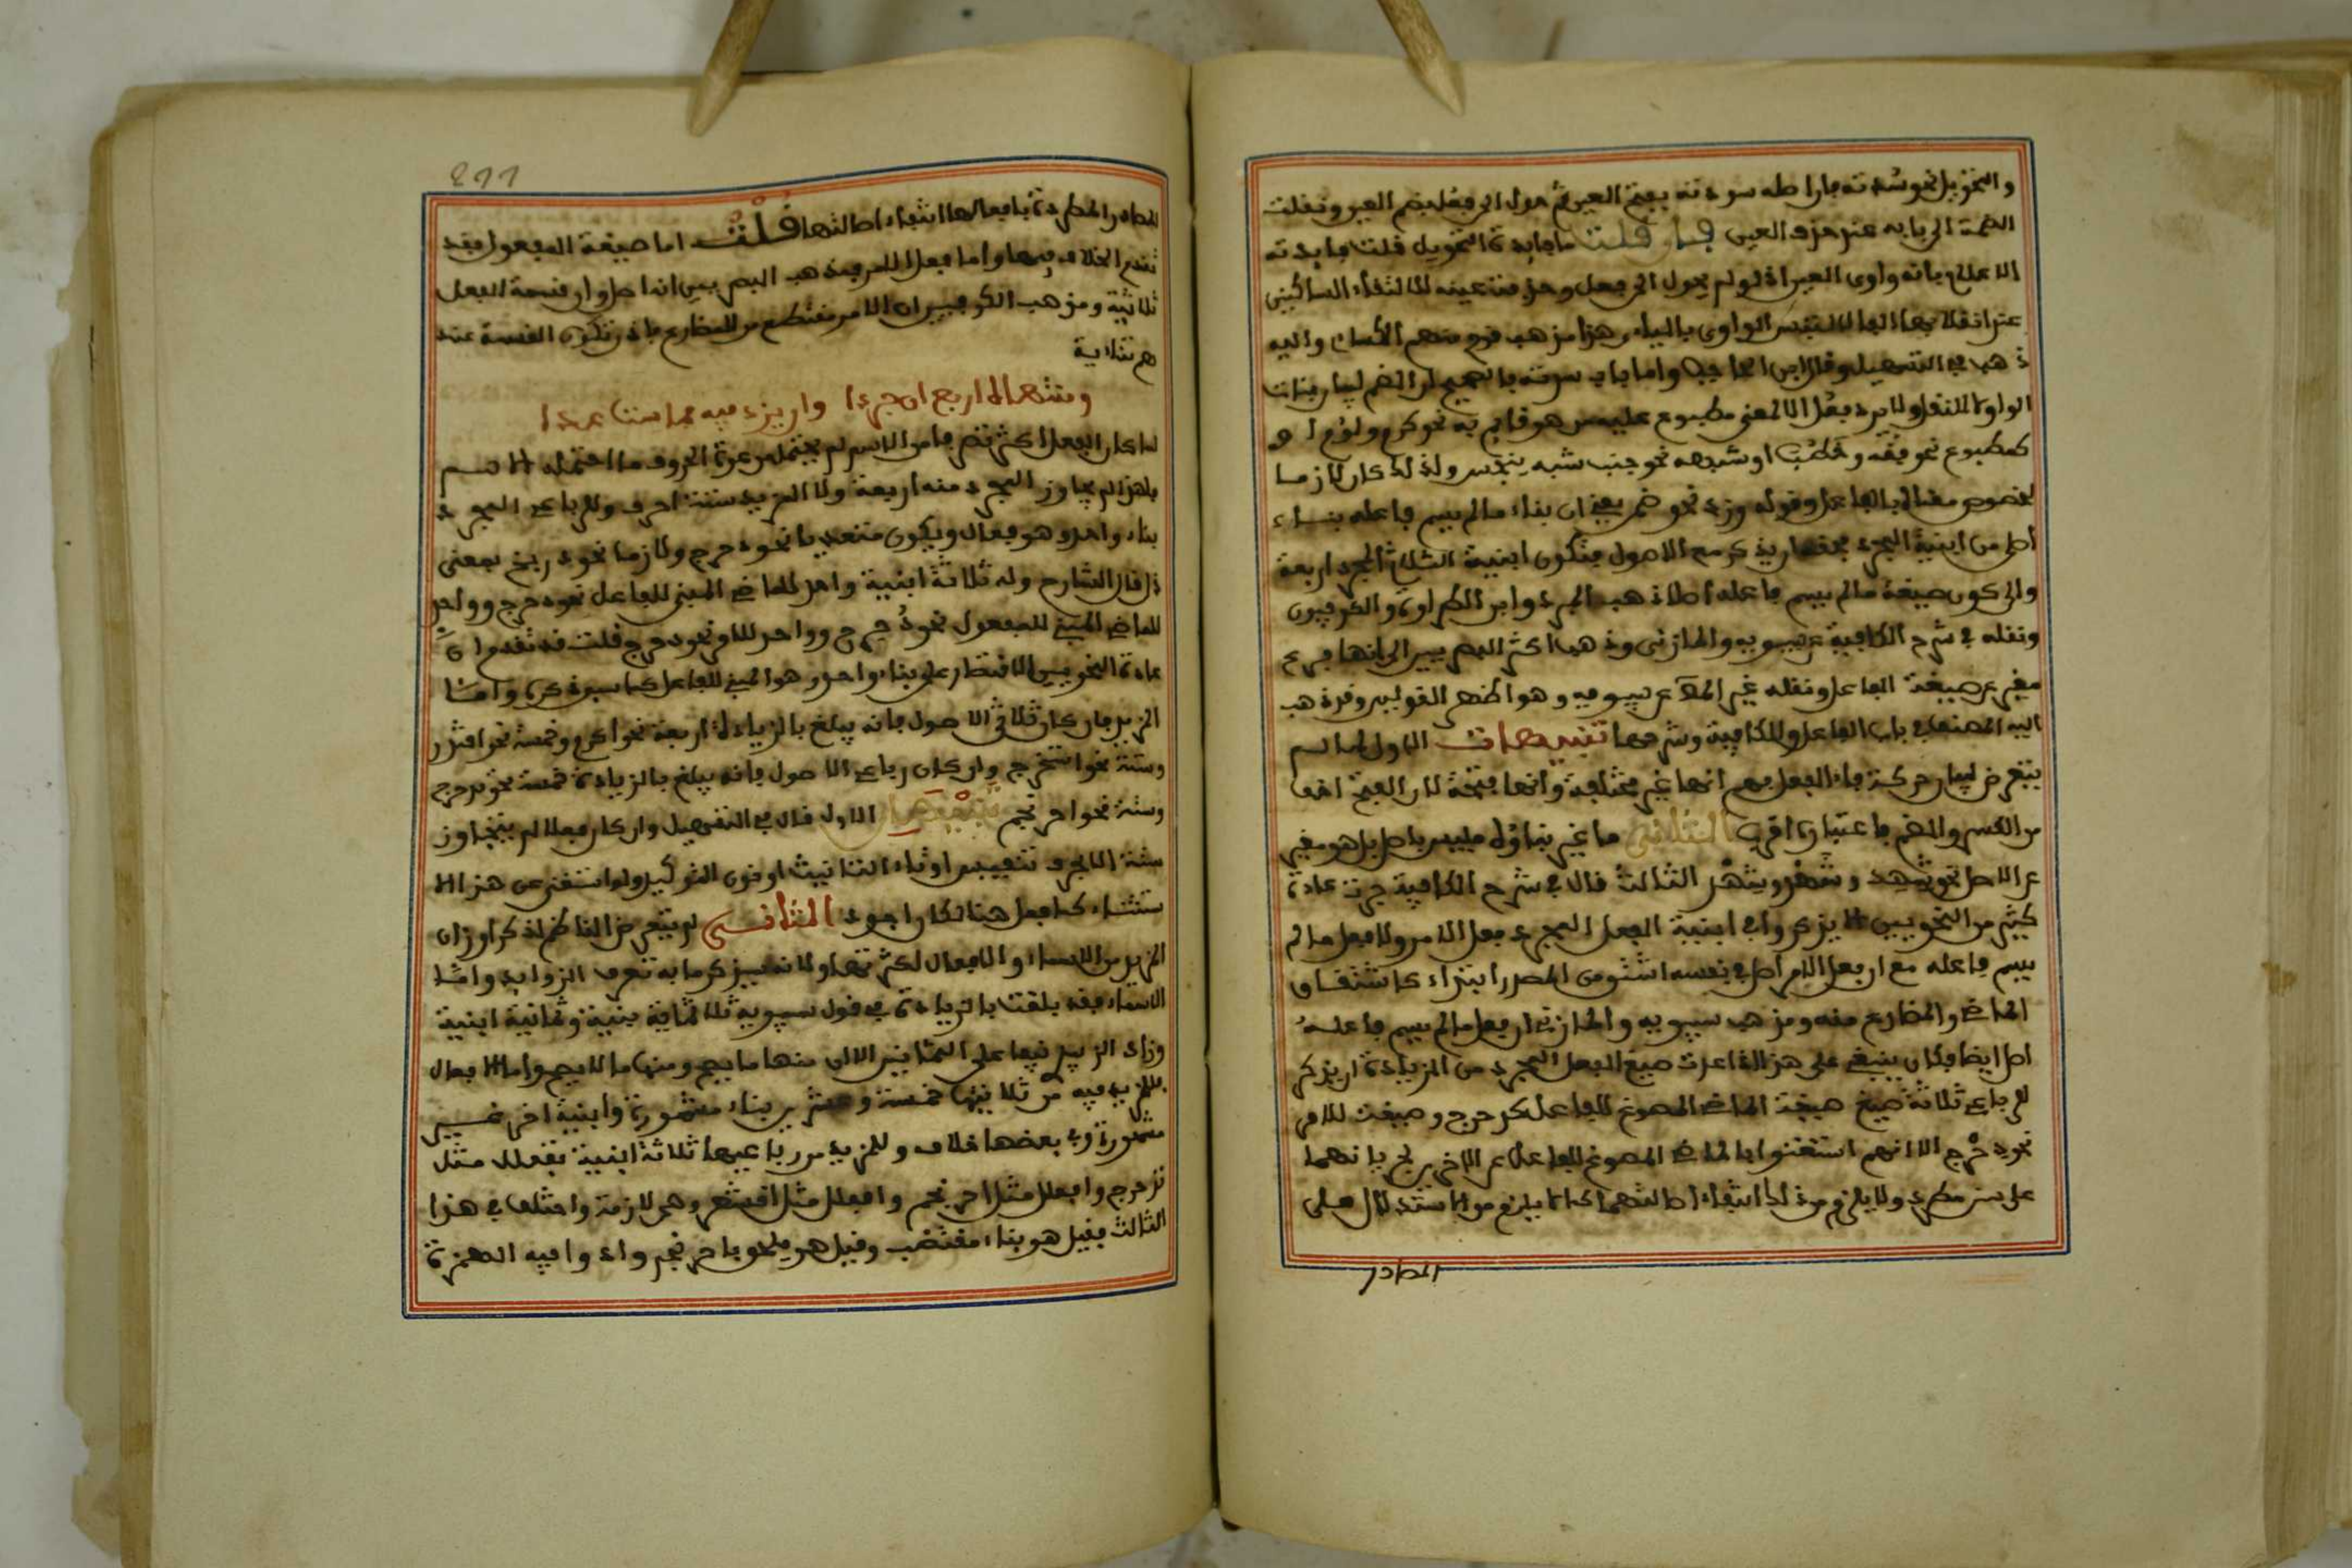 والتحويل نحو سدته فان اصله سودته بفتح العين ثم حول الى فعل بضم العين ونقلت
الضمة الى فائه عند حذف العين فان قلت ما فايدة التحويل قلت فايدته
الاعلام بانه واوى العين اذ لو لم يحول الى فعل وحذفت عينه لالتقاء الساكنين
عند انقلابها الفا لالتبس الواوى باليائى هذا مذهب قوم منهم الكسائى واليه
ذهب في التسهيل وقال ابن الحاجب واما باب سدته فالصحيح ان الضم لبيان بنات
الواو لا للنقل ولا يرد فعل الا لمعنى مطبوع عليه من هو قايم به نحو كرم ولؤم او
كمطبوع نحو فقه وخطب او شبهه نحو جنب شبه بنجس ولذلك كان لازما
لخصوص معناه بالفاعل وقوله وزد نحو ضمن يعنى ان بناء ما لم يسم فاعله بناء
اصلى من ابنية المجرد فحقه ان يذكر مع الاصول فتكون ابنية الثلاثى المجرد اربعة
والى كون صيغة ما لم يسم فاعله اصلا ذهب المبرد وابن الطراوة والكوفيون
ونقله في شرح الكافية عن سيبويه والمازنى وذهب اكثر البصريين الى انها فرع
مغير عن صيغة الفاعل ونقله غير المص عن سيبويه وهو اظهر القولين وقد ذهب
اليه المصنف في باب الفاعل وللكافية وشرحها تنبيهات الاول لما لم
يتعرض لبيان حركة فاء الفعل فهم انها غير مختلفة وانها فتحة لان الفتح اخف
من الكسر والضم فاعتباره اقرب الثانى ما غير بناؤه فليس باصل بل هو مغير
عن الاصل نحو شهد وشهد وشهد الثالث قال في شرح الكافية جرت عادة
كثير من النحويين الا يذكروا في ابنية الفعل المجرد فعل الامر ولا فعل ما لم
يسم فاعله مع ان فعل الامر اصل في نفسه اشتق من المصدر ابتداء كاشتقاق
الماضى والمضارع منه ومذهب سيبويه والمازنى ان فعل ما لم يسم فاعله
اصل ايضا فكان ينبغى على هذا اذا عدت صيغ الفعل المجرد من الزيادة ان يذكر
للرباعى ثلاثة صيغ صيغة الماضى المصوغ للفاعل كدحرج وصيغة للامر
نحو دحرج الا انهم استغنوا بالماضى المصوغ للفاعل عن الاخرين لجريانهما
على سنن مطرد ولا يلزم من ذلك انتفاء اصالتهما كما لا يلزم من الاستدلال على
المصادر
211
المصادر المطردة بافعالها انتفاء اصالتها قلت اما صيغة المفعول فقد
تقدم الخلاف فيها واما فعل الامر فمذهب البصريين انه اصل وان قسمة الفعل
ثلاثية ومذهب الكوفيين ان الامر مقتطع من المضارع فاذن تكون القسمة عند
هم ثنائية
ومنتهاه اربع ان جردا وان يزد فيه فما ستا عدا
لما كان الفعل اكثر تصرفا من الاسم لم يحتمل من عدة الحروف ما احتمله الاسم
فلهذا لم يجاوز المجرد منه اربعة ولا المزيد ستة احرف وللرباعى المجرد
بناء واحد وهو فعلل ويكون متعديا نحو دحرج ولازما نحو دربخ بمعنى
ذل قال الشارح وله ثلاثة ابنية واحد للماضى المبنى للفاعل نحو دحرج وواحد
للماضى المبنى للمفعول نحو دحرج وواحد للامر نحو دحرج قلت قد تقدم ان
عادة النحويين الاقتصار على بناء واحد وهو المبنى للفاعل كما سبق ذكره واما
المزيد فان كان ثلاثى الاصول فانه يبلغ بالزيادة اربعة نحو اكرم وخمسة نحو اقتدر
وستة نحو استخرج وان كان رباعى الاصول فانه يبلغ بالزيادة خمسة نحو تدحرج
وستة نحو احرنجم تنبيهان الاول قال في التسهيل وان كان فعلا لم يتجاوز
ستة الا بحرف تنفيس او تاء التانيث او نون التوكيد ولو استغنى عن هذا الا
ستثناء كما فعل هنا لكان اجود الثانى لم يتعرض الناظم لذكر اوزان
المزيد من الاسماء والافعال لكثرتها ولانه سيذكر ما به تعرف الزوايد واما
الاسماء فقد بلغت بالزيادة في قول سيبويه ثلاثماية بنية وثمانية ابنية
وزاد الزبيدى نيفا على الثمانين الا ان منها ما يصح ومنها ما لا يصح واما الافعال
فللمزيد فيه من ثلاثيها خمسة وعشرين بناء مشهورة وابنية اخر غير
مشهورة وفى بعضها خلاف وللمزيد من رباعيها ثلاثة ابنية تفعلل مثل
تدحرج وافعنلل مثل احرنجم وافعلل مثل اقشعر وهى لازمة واختلف في هذا
الثالث فقيل هو بناء مقتضب وقيل هو ملحق باحرنجم زادوا فيه الهمزة